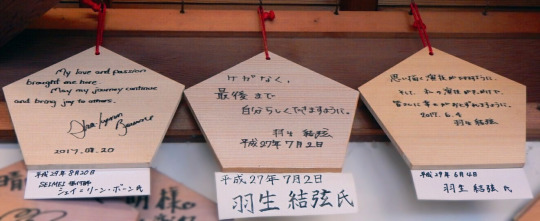 My love and passion
brought me here.
May my journey continue
and bring joy to others.
2017.08.20
平成29年8月20日
SEIMEI 振付師
シェイ=リーン・ボーン氏
けがなく、
最後まで
自分らしくできますように。
羽生 結弦
平成27年7月2日
平成27年7月2日
羽生 結弦氏
思い描く演技ができますように。
そして、私の演技がきっかけで、
皆さんに幸せがおとずれますように。
2017.6.4
羽生 結弦
平成29年6月4日
羽生 結弦氏
晴
明様